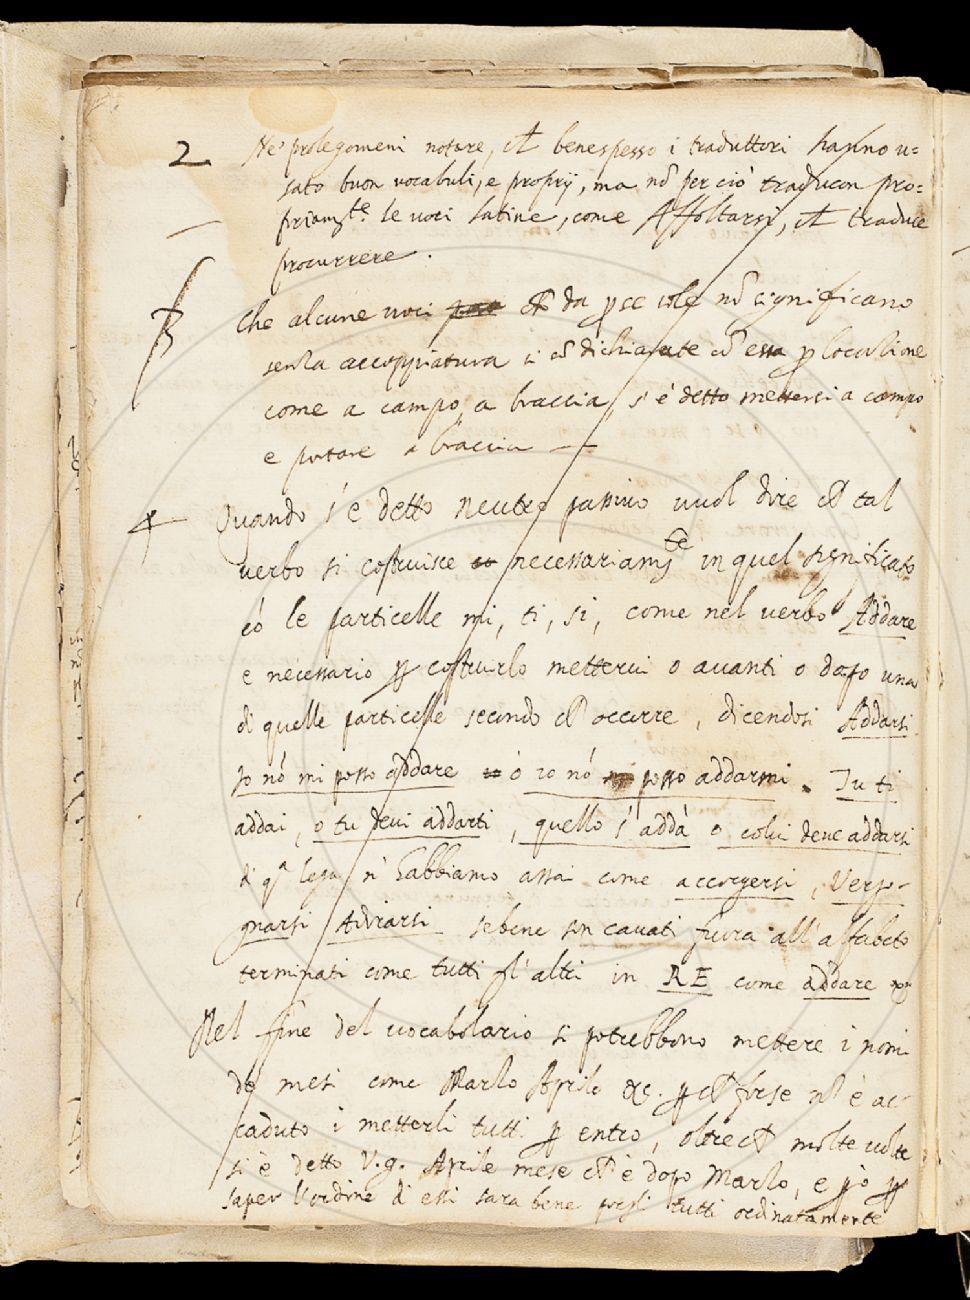 2 Ne' prolegomeni notare, ch benespesso i traduttori hanno u=
sato buon vocabuli, e proprij, ma nō per ciò traducon pro=
priamte le voci latine, come Affoltarsi, ch traduce
procurrere.
Che alcune voci ch da p se sole nō significano
senza accoppiatura si cō essa p locuzione
come a campo, a braccia, s'è detto mettersi a campo
e portare a braccia
4 Quando s'è detto neutro passivo vuol dire ch tal
verbo si costruisce necessariamte in quel significato
cō le particelle mi, ti, si, come nel verbo Addare
e necessario p costruirlo mettervi o avanti o dopo una
di quelle particelle secondo ch occorre, dicendosi Addarsi
Io nō mi posso addare ò io nō posso addarmi. Tu ti
addai, o tu devi addarti, quello s'addà o colui deve addarsi
di qa lega n' habbiamo assai come accorgersi, Vergo-
gnarsi Adirarsi sebene son cavati fuora all'alfabeto
terminati come tutti gl'altri in RE come addare
Nel fine del vocabolario si potrebbono mettere i nomi
de mesi come Marzo Aprile &c. p ch forse nō è ac-
caduto i metterli tutti p entro, oltrech molte volte
si è detto V.g. Aprile mese ch è dopo Marzo, e p ò p
saper l'ordine di essi sara bene porgli tutti ordinatamente